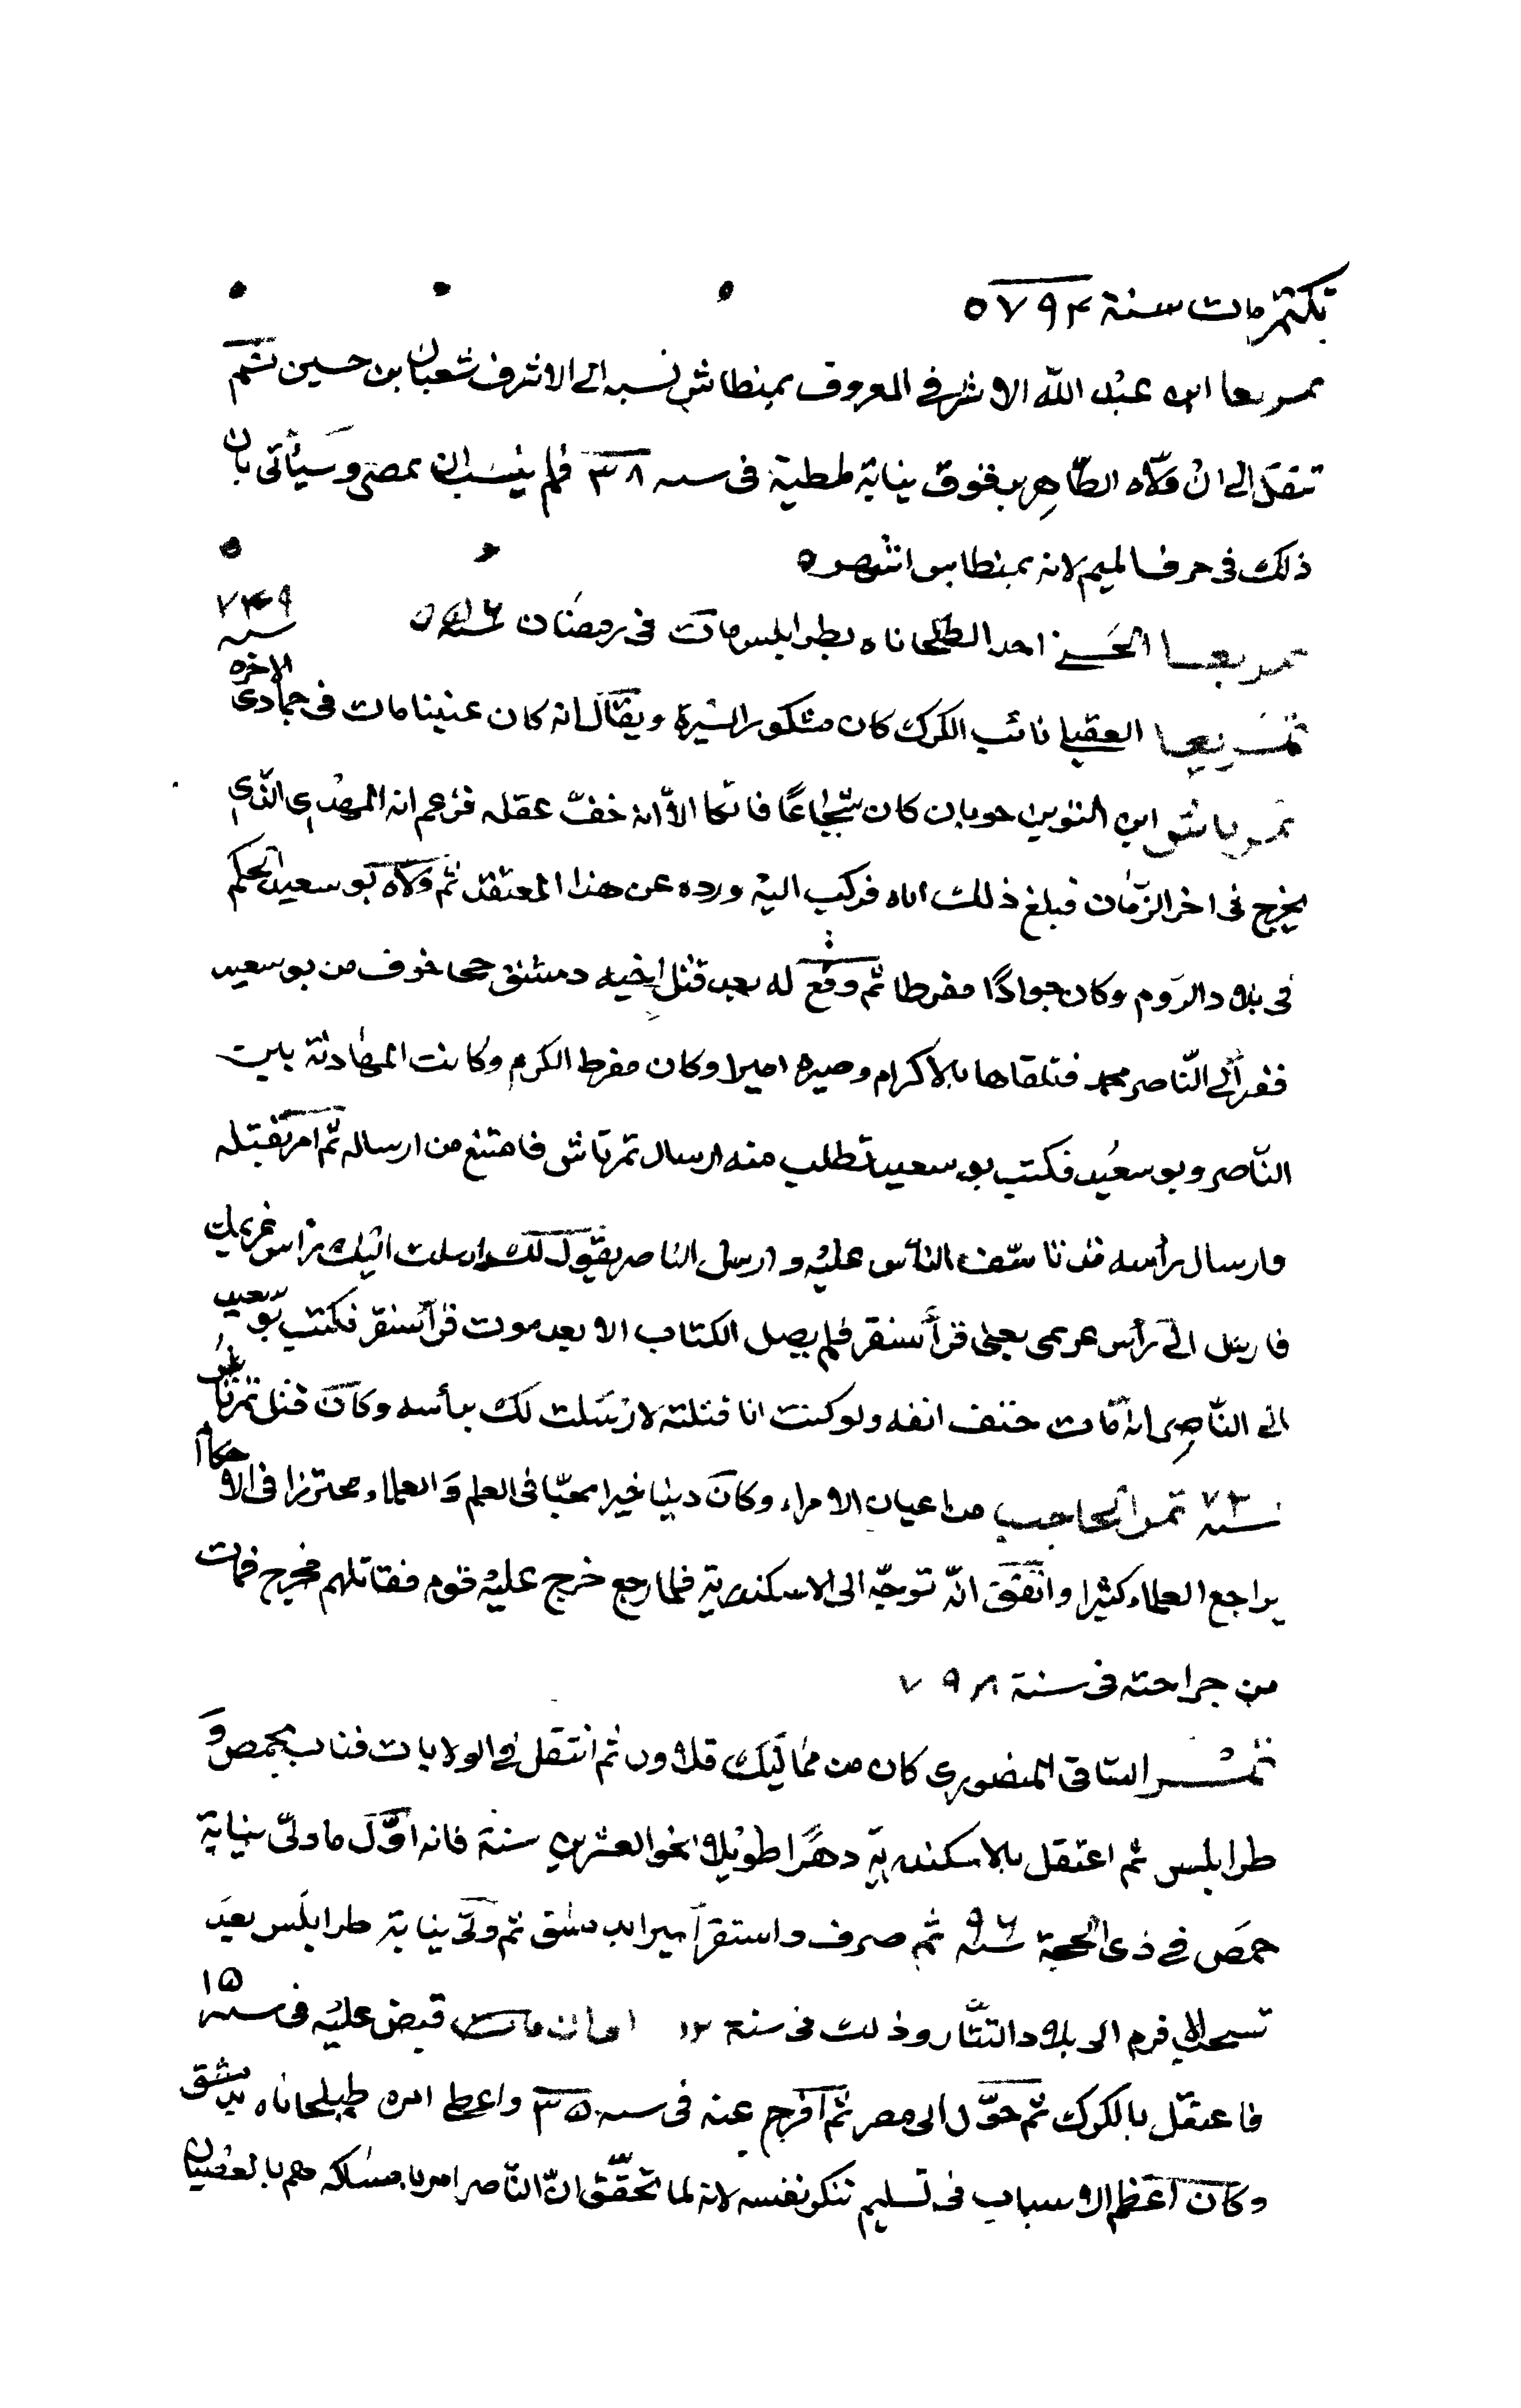 بكتمر مات سنة ٧٩٤ ٥
تمربغا ابن عبد الله الاشرفى المعروف بمنطاش نسبه الى الاشرف شعبان بن حسين ثم
تنقل الى ان ولّاه الظّاهر برقوق نيابة ملطية فى سنه ٨٣ فلم ينشب ان بمصر وسيأتى بان
ذلك فى حرف الميم لانه بمنطاس اشهر ٥
تمربغا الحسنى احد الطبلخاناه بطرابلس مات فى رمضان سنة
تمربغا العقيلى نائب الكرك كان مشكور السّيرة ويقال انه كان عنينا مات فى جمادى الاخره سنه ٧٤٩
تمرباش ابن النوين جوبان كان شجاعًا فاتكا الاّ انه خفّ عقله فزعم انه المهدى الذى
يخرج فى اخر الزّمان فبلغ ذلك اباه فركب اليه ورده عن هذا المعتقد ثم ولاه بو سعيد الحكم
فى بلاد الرّوم وكان جوادًا مفرطا ثم وقع له بعد قتل اخيه دمشق خجا خوف من بو سعيد
ففر الى النّاصر محمد فتلقاها بالاكرام وصيره اميرا وكان مفرط الكرم وكانت المهادنة بين
النّاصر وبو سعيد فكتب بو سعيد تطلب منه ارسال تمرتاش فامتنع من ارساله ثم امر بقتله
وارسال رأسه فتاسّف النّاس عليه وارسل الناصر يقول لك ارسلت اليك براس غريمك
فارسل الى رأس غريمى يعنى قرأسنقر فلم يصل الكتاب الا بعد موت قرأسنقر فكتب بو سعيد
الى النّاصر انه مات حتف انفه ولو كنت انا قتلته لارسلت لك برأسه وكان قتل تمرتاش
سنة تمر الحاجب من اعيان الامراء وكان دينا خيرا محبّا فى العلم والعلماء محترزا فى الاحكام
يراجع العلماء كثيرا واتّفق انّه توجّه الى الاسكندرية فلما رجع خرج عليه قوم فقاتلهم فجرح فمات
من جراحته فى سنة ٧٩٨
تمر الساقى المنصورى كان من مماليك قلاون ثم انتقل فى الولايات فناب بحمص و
طرابلس ثم اعتقل بالاسكندرية دهرًا طويلا نحو العشرين سنة فانه اوّل ما ولى نيابة
حمص فى ذى الحجة سنة ٩٦ ثم صرف واستقر اميرا بدمشق ثم ولى نيابة طرابلس بعد
تسحب الافرم الى بلاد التّتار وذلك فى سنة ١٢ قبض عليه فى سنة ١٥
فاعتقل بالكرك ثم حوّل الى مصر ثم افرج عنه فى سنه ٣٥ واعطى امره طبلخاناه بدمشق
وكان اعظم الاسباب فى تسليم تنكز نفسه لانه لما تحقّق انّ النّاصر امر بامساكه هم بالعصيان